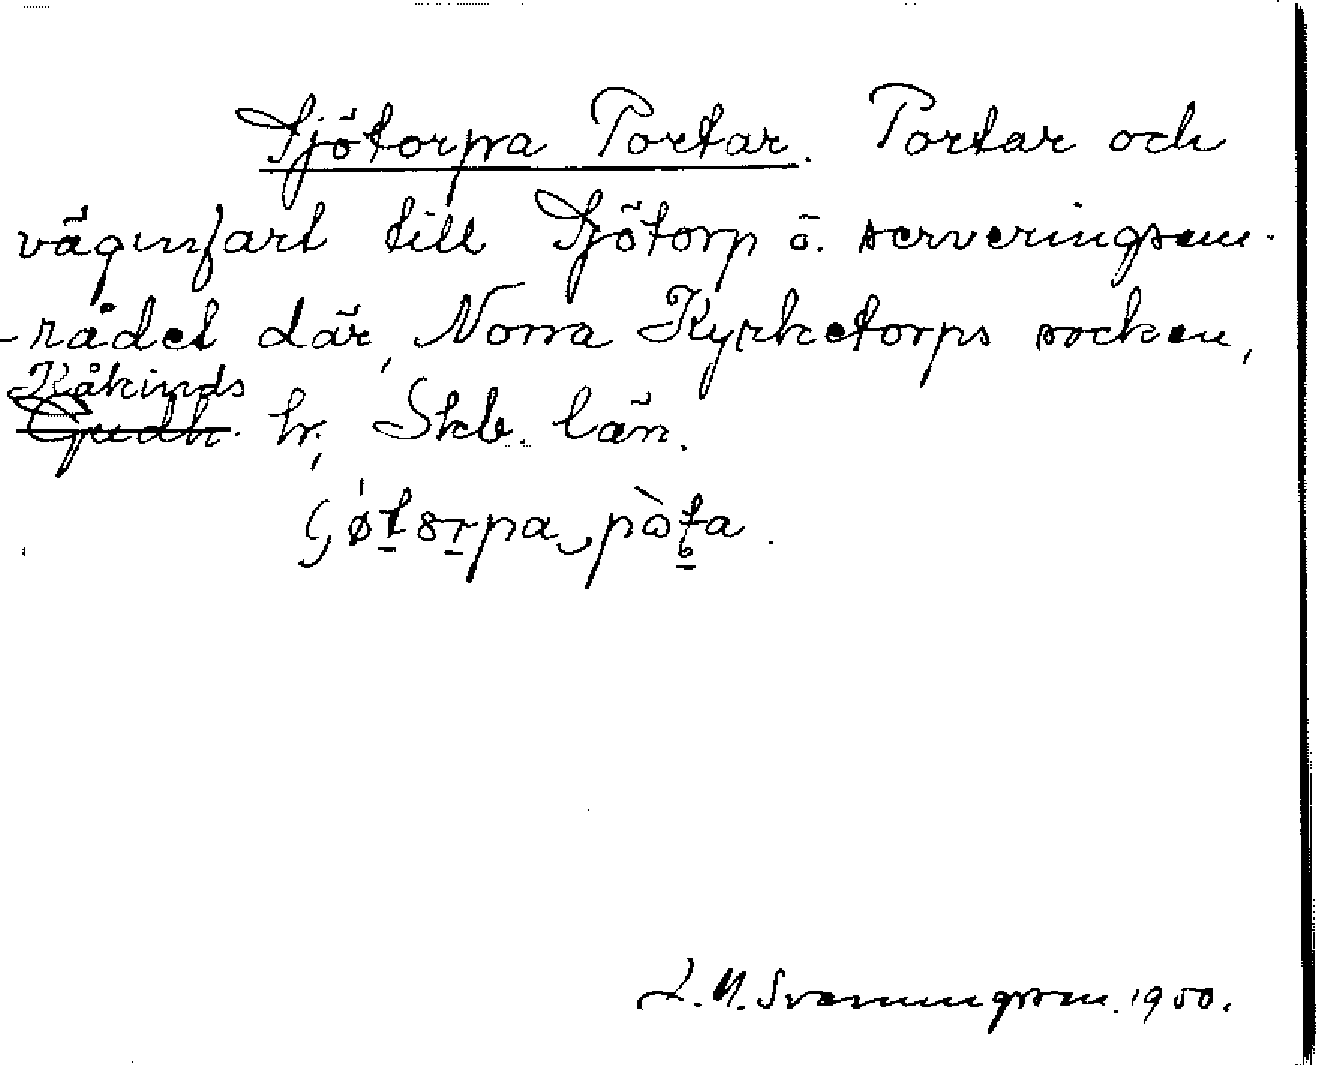 Sjötorpa Portar. Portar och
väginfart till Sjötorp o. serveringsom-
-rådet där, Norra Kyrketorps socken,
Kåkinds
Gudh. hr, Skb. län.
L.M. Svenungsson. 1950.